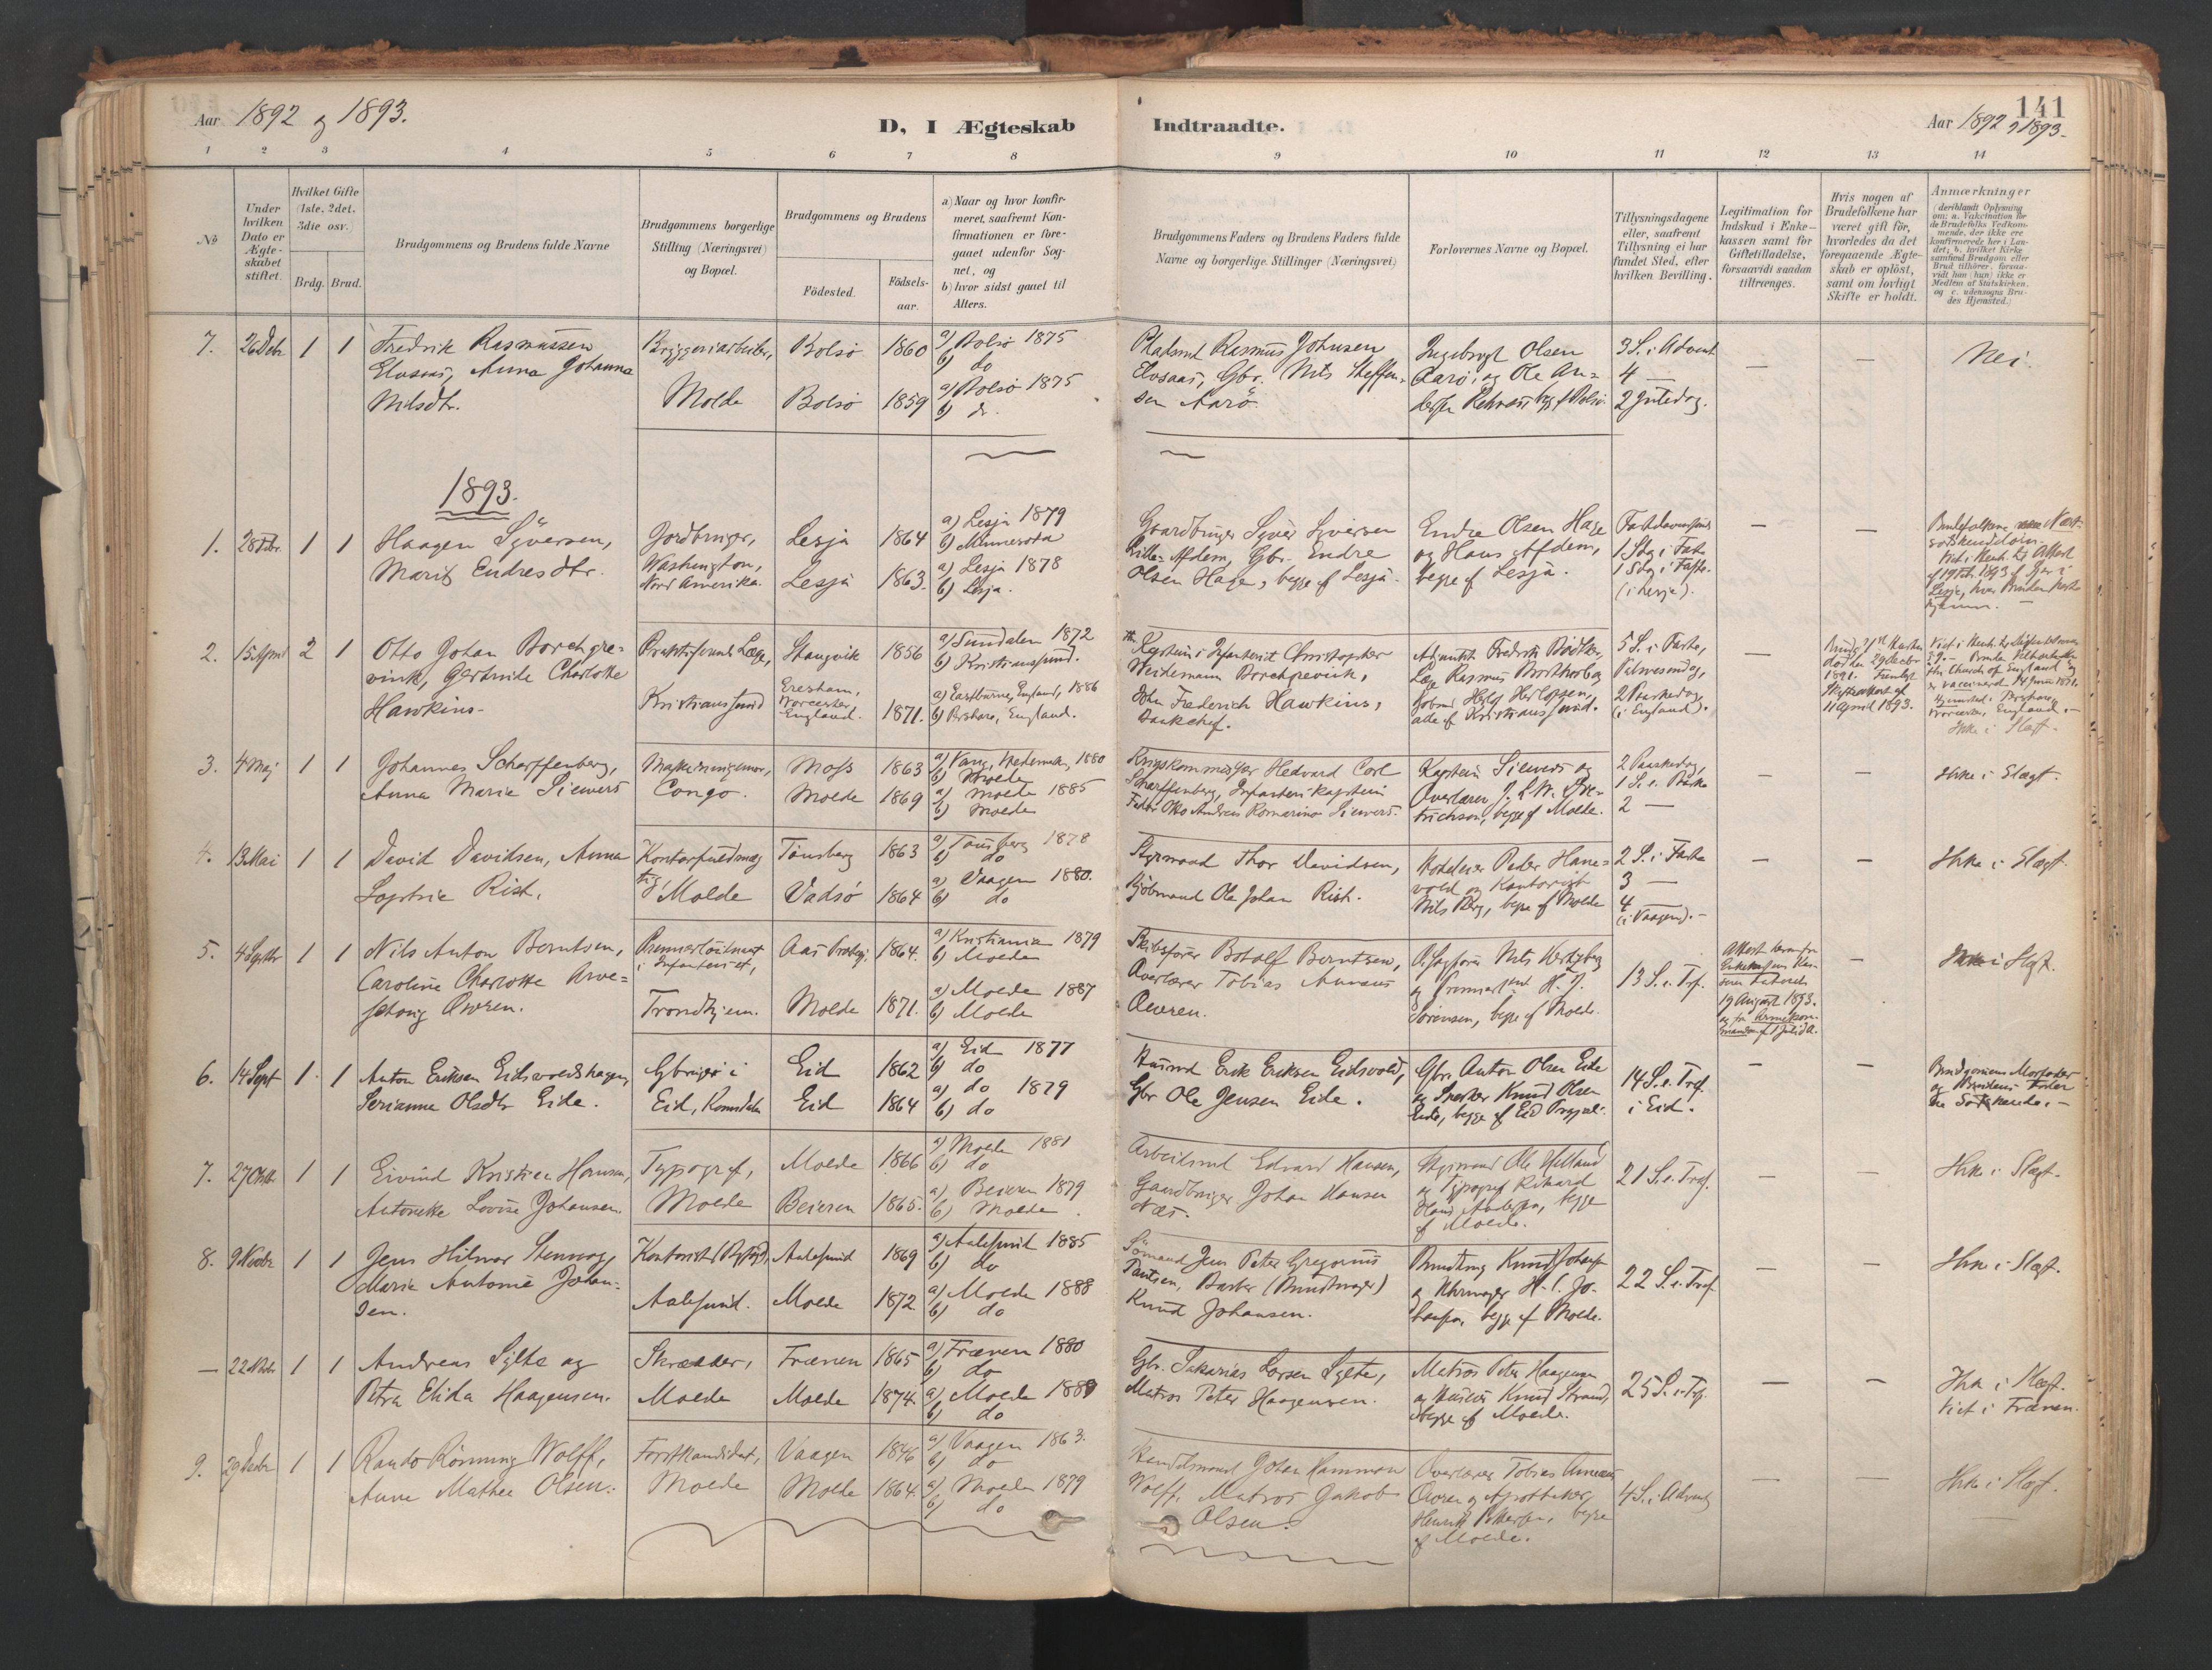 Aar 1892 og 1893.
D, I Ægteskab Indtraadte.
141
Aar 1892 og 1893.
1 2 3 4 5 6 7 8 9 10 11 12 13 14
No
Under hvilken Dato er Ægteskabet stiftet.
Hvilket Gifte (1ste, 2det, 3die osv.)
Brdg. Brud.
Brudgommens og Brudens fulde Navne
Brudgommens borgerlige Stilling (Næringsvei) og Bopæl.
Brudgommens og Brudens
Födested.
Födsels-aar.
a) Naar og hvor konfir-
meret, saafremt Kon-
firmationen er fore-
gaaet udenfor Sog-
net, og
b) hvor sidst gaaet til
Alters.
Brudgommens Faders og Brudens Faders fulde
Navne og borgerlige Stillinger (Næringsvei)
Forlovernes Navne og Bopæl.
Tillysningsdagene
eller, saafremt
Tillysning ei har
fundet Sted, efter
hvilken Bevilling.
Legitimation for
Indskud i Enke-
kassen samt for
Giftetilladelse,
forsaavidt saadan
tiltrænges.
Hvis nogen af
Brudefolkene har
været gift för,
hvorledes da det
foregaaende Ægte-
skab er oplöst,
samt om lovligt
Skifte er holdt.
Anmærkninger
(deriblandt Oplysning
om: a. Vakcination for
de Brudefolks Vedkom-
mende, der ikke ere
konfirmerede her i Lan-
det; b. hvilket Kirke-
samfund Brudgom eller
Brud tilhörer, forsaa-
vidt han (hun) ikke er
Medlem af Statskirken,
og c. udensogns Bru-
des Hjemsted.)
7. 26 Debr 1 1
Fredrik Rasmussen
Elvsaas, Anna Johanna
Nilsdtr.
Bryggeriarbeider,
Molde
Bolsö 1860
Bolsö 1859
a) Bolsö 1875
b) do
a) Bolsö 1875
b) do
Pladsmd Rasmus Johnsen
Elvsaas, Gbr. Nils Steffen-
sen Aarö.
Ingebregt Olsen
Aarö, og Ole An-
3 S. i Advent
4 —
2 Juledag.
— — Nei.
1893.
1. 28 Febr. 1 1
Haagen Syversen,
Marit Endresdtr.
Jordbruger,
Washington,
Nord Amerika.
Lesja 1864
Lesja 1863.
a) Lesja 1879
b) Minnesota
a) Lesja 1878
b) Lesja.
Gaardbruger Syver Syversen
Lille-Afdem, Gbr. Endre
Olsen Hage, begge af Lesja.
Endre Olsen Hage
og Hans Afdem,
begge af Lesja.
1 Sdg i Faste
(i Lesja).
— —
2. 15 April 2 1
Otto Johan Borchgre-
vink, Gertrude Charlotte
Hawkins.
Praktiserende Læge,
Kristianssund
Stangvik 1856
Evesham,
Worcester
England. 1871.
a) Sundalen 1872
b) Kristianssund.
a) Eastburne, England, 1886
b) Pershore, England.
Kaptein i Infanteriet Christopher
Weidemann Borchgrevink,
John Frederich Hawkins,
Bankchef.
Adjunkt Fredrik Bödtker,
Læge Rasmus
alle af Kristianssund.
5 S. i Faste,
Palmesöndag,
2 Paaskedag,
(i England).
—
död den 29 Decbr
1891.
Skifteattest af
11 April 1893.
Church of England og
er vaccineret 14 Juni 1871.
Hjemsted: Pershore,
Worcester, England.
Ikke i Slægt.
3. 4 Maj 1 1
Johannes Scharffenberg,
Anna Marie Siewers
Maskiningeniör,
Congo.
Moss 1863
Molde 1869
a) Vang, Hedemark, 1880
b) Molde
a) Molde 1885
b) Molde
Krigskommissær Hedvard Carl
Scharffenberg, Infanteri-Kaptein
Otto Andreas Romarino Siewers.
Kaptein Siewers og
Overlærer
begge af Molde.
2 Paaskedag,
1 S. e. Paaske
2 —
Ikke i Slægt.
4. 13 Mai 1 1
David Davidsen, Anna
Sophie Rist.
Kontorfuldmæg-
tig, Molde
Tönsberg 1863
Vadsö 1864
a) Tönsberg 1878
b) do
a) Vaagen 1880.
b) do
Styrmand Thor Davidsen,
Kjöbmand Ole Johan Rist.
Hoteleier Peder Hane-
vold og Kontorist
Nils Berg, begge af Molde
2 S. i Faste
3 —
4 —
(i Vaagen).
— — Ikke i Slægt.
5. 4 Septbr 1 1
Nils Anton Berntsen,
Caroline Charlotte Arve-
schoug Owren.
Premierlöitnant
i Infanteriet,
Trondhjem.
Aas Præstgj. 1864.
Molde 1871.
a) Kristiania 1879
b) Molde
a) Molde 1887
b) Molde
Skibsförer Botolf Berntsen,
Overlærer Tobias Annæus
Owren.
O. Sagförer Nils Kortgaard
og Premierltnt H. J.
Sörensen, begge af Molde.
13 S. e. Trf.
19 August 1893.
— Ikke i Slægt.
6. 14 Sept 1 1
Anton Eriksen Eidsvoldshagen,
Serianna Olsdtr Eide.
Gbruger i
Eid, Romsdalen
Eid 1862
Eid 1864
a) Eid 1877
b) do
a) do 1879
b) do
Husmd Erik Eriksen Eidsvold,
Gbr Ole Jensen Eide.
Gbr. Anton Olsen Eide
og Snedker Knud Olsen
Eide, begge af Eid Prgjæl.
14 S. e. Tref.
i Eid.
— —
Brudgommens Morfader
og Brudens Fader
ere Söskende.
7. 27 Oktbr 1 1
Eivind Kristian Hansen,
Antonette Lovise Johansen.
Typograf,
Molde
Molde 1866
Beieren 1865.
a) Molde 1881
b) do
a) Beieren 1879
b) Molde
Arbeidsmd Edvard Hansen,
Gaardbruger Johan Hansen
Næs.
Styrmand Ole Helland
og Typograf Rikard
begge
af Molde.
21 S. e. Tref.
— — Ikke i Slægt.
8. 9 Novbr 1 1
Jens Hilmar Stenvaag,
Marie Antonie Johan-
sen.
Aalesund.
Aalesund 1869
Molde 1872
a) Aalesund 1885
b) do
a) Molde 1888
b) do
Sömand Jens Peter Gregorius
Knud Johansen.
begge af Molde.
22 S. e. Tref.
— — Ikke i Slægt.
— 22 Novbr 1 1
Andreas Sylte og
Petra Elida Haagensen.
Skræder,
Molde
Frænen 1865
Molde 1874.
a) Frænen 1880
b) do
a) Molde 1889
b) do
Gbr. Sakarias Larsen Sylte,
Matros Peter Haagensen.
Matros Peter Haagensen
og Knud Strand,
begge af Molde.
25 S. e. Trf.
— —
Ikke i Slægt.
Viet i Frænen.
9. 29 Decbr 1 1
Rando Rönning Wolff,
Anne Mathea Olsen.
Forstkandidat,
Molde
Vaagen 1846
Molde 1864.
a) Vaagen 1863.
b) do
a) Molde 1879
b) do
Handelsmand Johan Hammer
Wolff, Matros Jakob
Olsen.
Overlærer Tobias Annæus
Owren og Apotheker
Henrik Pettersen, begge
af Molde.
4 S. i Advent
— — Ikke i Slægt.